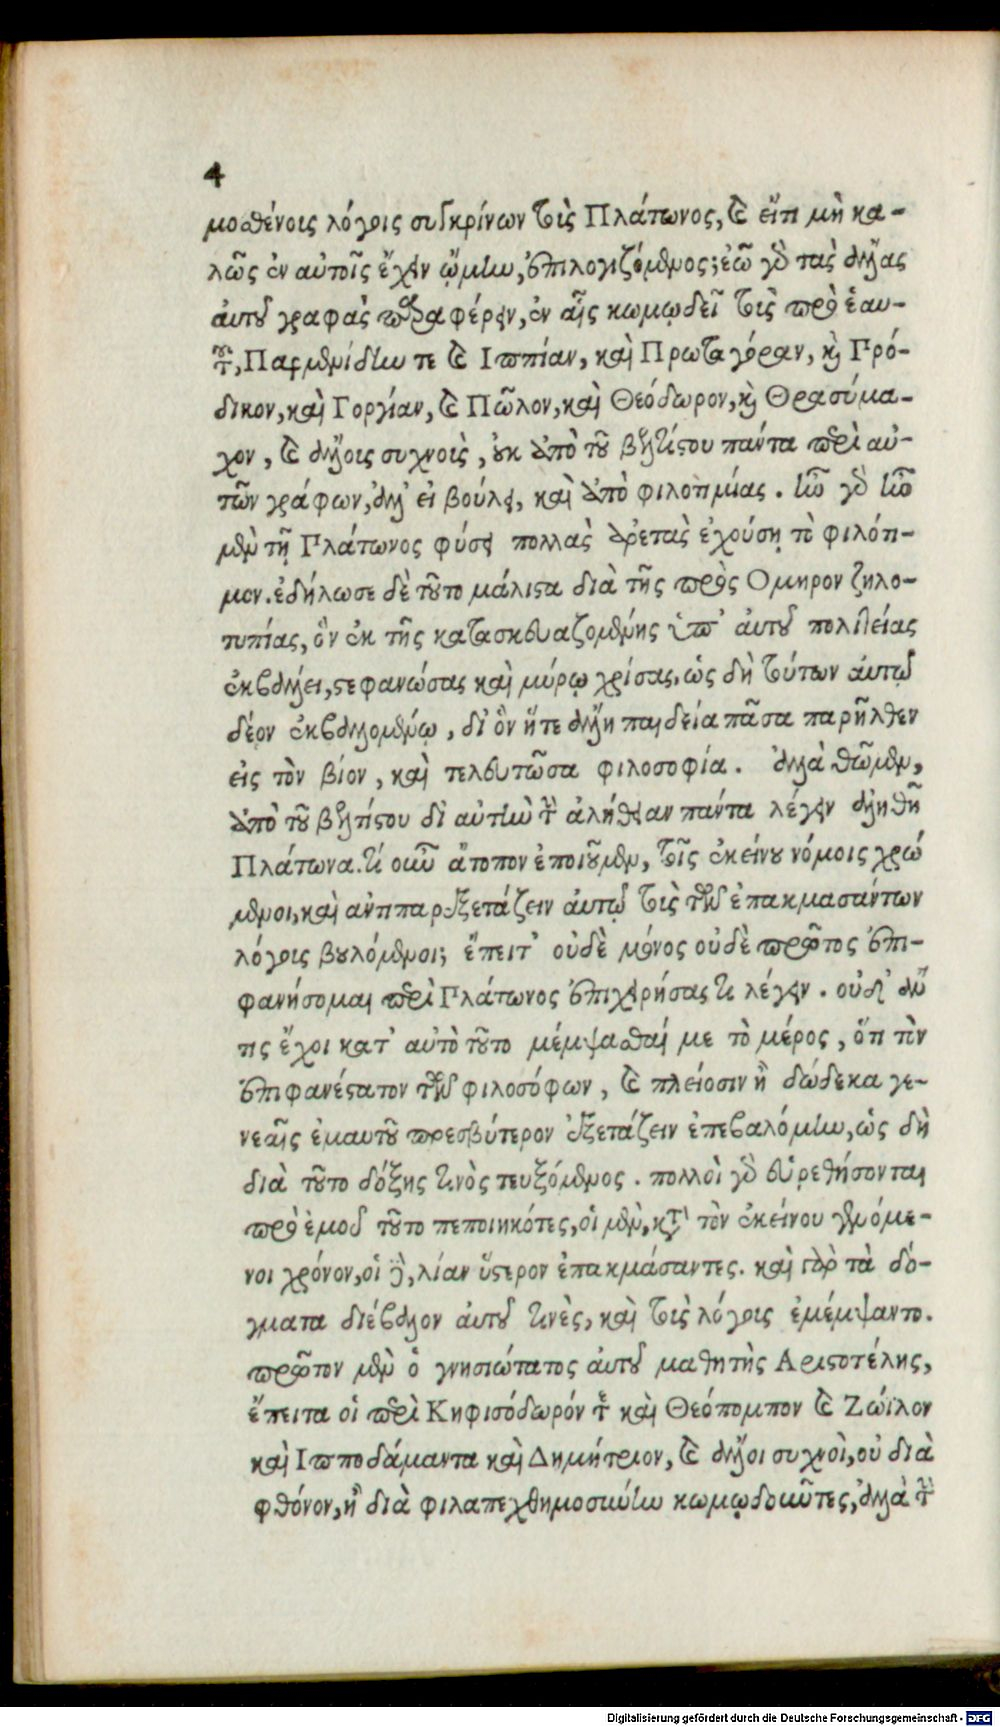 4
μοσθένοις λόγοις συγκρίνων τοὺς Πλάτωνος, καὶ εἴτι μὴ κα-
λῶς ἐν αὐτοῖς ἔχειν ᾤμην, ἐπιλογιζόμενος; ἐῶ γὰρ τὰς ἄλλας
αὐτοῦ γραφὰς παραφέρειν, ἐν αἷς κωμῳδεῖ τοὺς πρὸ ἑαυ-
τοῦ, Παρμενίδην τε καὶ Ιππίαν, καὶ Πρωταγόραν, καὶ Πρό-
δικον, καὶ Γοργίαν, καὶ Πῶλον, καὶ Θεόδωρον, καὶ Θρασύμα-
χον, καὶ ἄλλοις συχνοὶς, οὐκ ἀπὸ τοῦ βελτίστου πάντα περὶ αὐ-
τῶν γράφων, ἀλλ' εἰ βούλει, καὶ ἀπὸ φιλοτιμίας. ἦν γὰρ ἦν
μὲν τῇ Πλάτωνος φύσει πολλὰς ἀρετὰς ἐχούσῃ τὸ φιλότι-
μον. ἐδήλωσε δὲ τοῦτο μάλιστα διὰ τῆς πρὸς Ομηρον ζηλο-
τυπίας, ὃν ἐκ τῆς κατασκευαζομένης ὑπ' αὐτοῦ πολιτείας
ἐκβάλλει, στεφανώσας καὶ μύρῳ χρίσας, ὡς δὴ τούτων αὐτῷ
δέον ἐκβαλλομένῳ, δι' ὃν ἥτε ἄλλη παιδεία πᾶσα παρῆλθεν
εἰς τὸν βίον, καὶ τελευτῶσα φιλοσοφία. ἀλλὰ θῶμεν,
ἀπὸ τοῦ βελτίστου δι' αὐτὴν τὴν ἀλήθειαν πάντα λέγειν ἀληθῆ
Πλάτωνα. τί οὖν ἄτοπον ἐποιοῦμεν, τοῖς ἐκείνου νόμοις χρώ
μενοι, καὶ ἀντιπαρεξετάζειν αὐτῷ τοὺς τῶν ἐπακμασάντων
λόγοις βουλόμενοι; ἔπειτ' οὐδὲ μόνος οὐδὲ πρῶτος ἐπι-
φανήσομαι περὶ Πλάτωνος ἐπιχειρήσας τι λέγειν. οὐδ' ἄν
τις ἔχοι κατ' αὐτὸ τοῦτο μέμψασθαί με τὸ μέρος, ὅτι τὸν
ἐπιφανέστατον τῶν φιλοσόφων, καὶ πλείοσιν ἢ δώδεκα γε-
νεαῖς ἐμαυτοῦ πρεσβύτερον ἐξετάζειν ἐπεβαλόμην, ὡς δὴ
διὰ τοῦτο δόξης τινὸς τευξόμενος. πολλοὶ γὰρ εὑρεθήσονται
πρὸ ἐμοῦ τοῦτο πεποιηκότες, οἱ μὲν, κατὰ τὸν ἐκείνου γενόμε-
νοι χρόνον, οἱ δὲ, λίαν ὕστερον ἐπακμάσαντες. καὶ γὰρ τὰ δό-
γματα διέβαλλον αὐτοῦ τινὲς, καὶ τοὺς λόγοις ἐμέμψαντο.
πρῶτον μὲν ὁ γνησιώτατος αὐτοῦ μαθητὴς Αριστοτέλης,
ἔπειτα οἱ περὶ Κηφισόδωρόν τε καὶ Θεόπομπον καὶ Ζωίλον
καὶ Ιπποδάμαντα καὶ Δημήτριον, καὶ ἄλλοι συχνοὶ, οὐ διὰ
φθόνον, ἢ διὰ φιλαπεχθημοσύνην κωμῳδοῦντες, ἀλλὰ τὴν
Digitalisierung gefördert durch die Deutsche Forschungsgemeinschaft - DFG